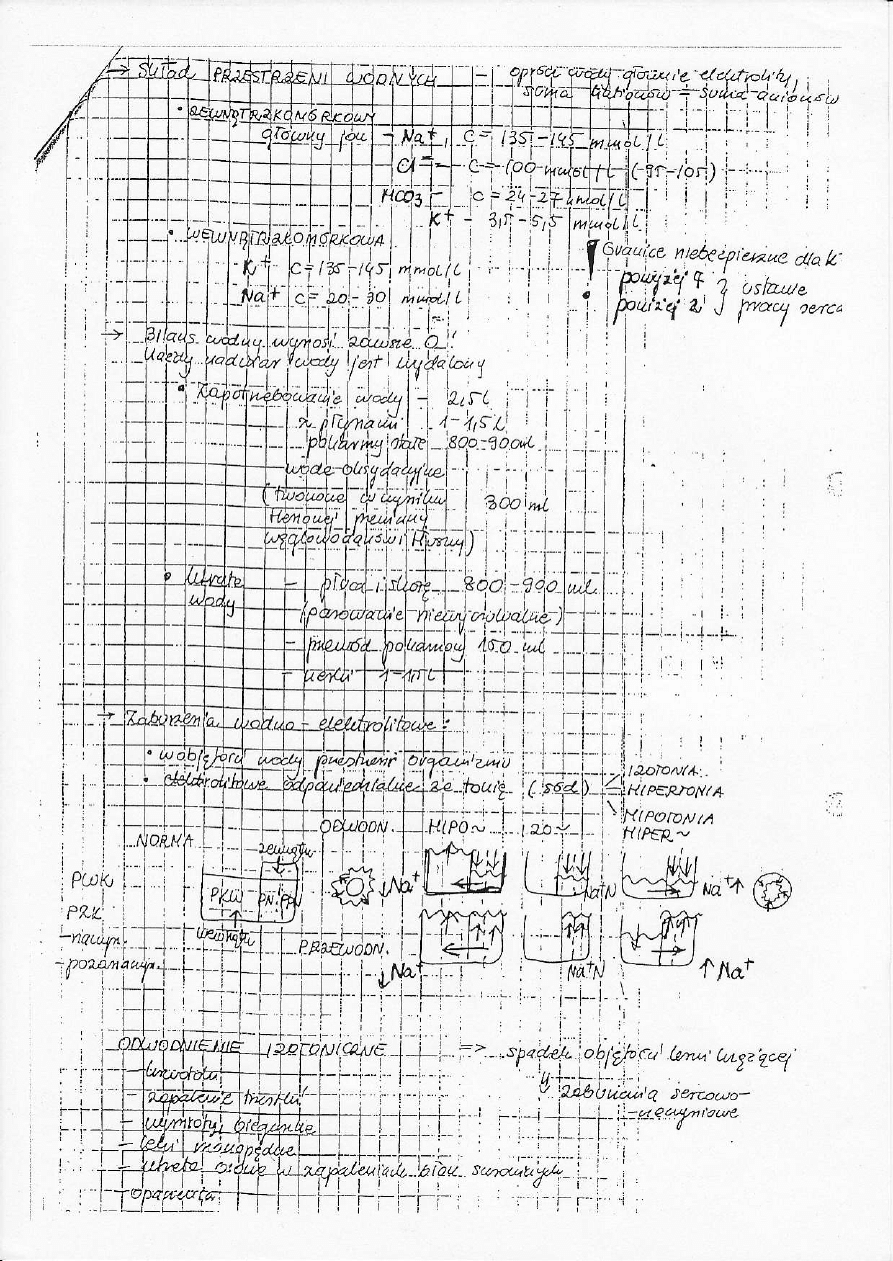 → Skład PRZESTRZENI WODNYCH - oprócz wody głównie elektrolity,
suma kationów = suma anionów
• ZEWNĄTRZKOMÓRKOWY
główny jon - Na⁺, C = 135-145 mmol/l
Cl⁻ - C = 100 mmol/l (95-105)
HCO₃⁻ - C = 24-27 mmol/l
K⁺ - 3,5-5,5 mmol/l
• WEWNĄTRZKOMÓRKOWA
K⁺ C = 135-145 mmol/l
Na⁺ C = 20-30 mmol/l
! Granice niebezpieczne dla K
powyżej 7 } ustanie
poniżej 2 } pracy serca
→ Bilans wodny wynosi zawsze 0!
Każdy nadmiar wody jest wydalony
• Zapotrzebowanie wody - 2,5l
z płynami 1-1,5l
pokarmy stałe 800-900ml
woda oksydacyjna
(tworzona w wyniku 300 ml
tlenowej przemiany
węglowodanów i tłuszczy)
• Utrata - płuca i skórę 800-900 ml
wody (parowanie niewyczuwalne)
- przewód pokarmowy 150 ml
- nerki 1-1,5l
→ Zaburzenia wodno-elektrolitowe:
• w objętości wody przestrzeni organizmu
• elektrolitowe odpowiedzialne za tonię (sód) IZOTONIA
HIPERTONIA
HIPOTONIA
ODWODN. HIPO~ IZO~ HIPER~
NORMA
zewnątrz
PWK PKW PN. ↓Na⁺ Na⁺N Na⁺↑
PZK
- naczyn. wewnątrz PRZEWODN.
- pozanaczyn. ↓Na⁺ Na⁺N ↑Na⁺
ODWODNIENIE IZOTONICZNE => spadek objętości krwi krążącej
- krwotoki
- zapalenie trzustki zaburzenia sercowo-
-naczyniowe
- wymioty, biegunka
- leki moczopędne
- utrata osocza w zapaleniach błon surowiczych
- oparzenia